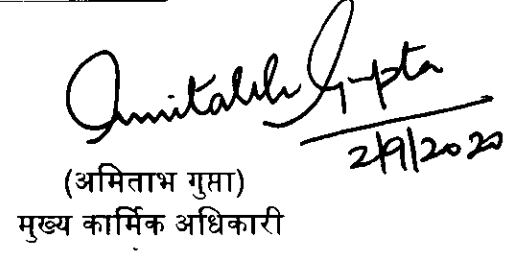 Amitabh Gupta
2/9/2020
(अमिताभ गुप्ता)
मुख्य कार्मिक अधिकारी